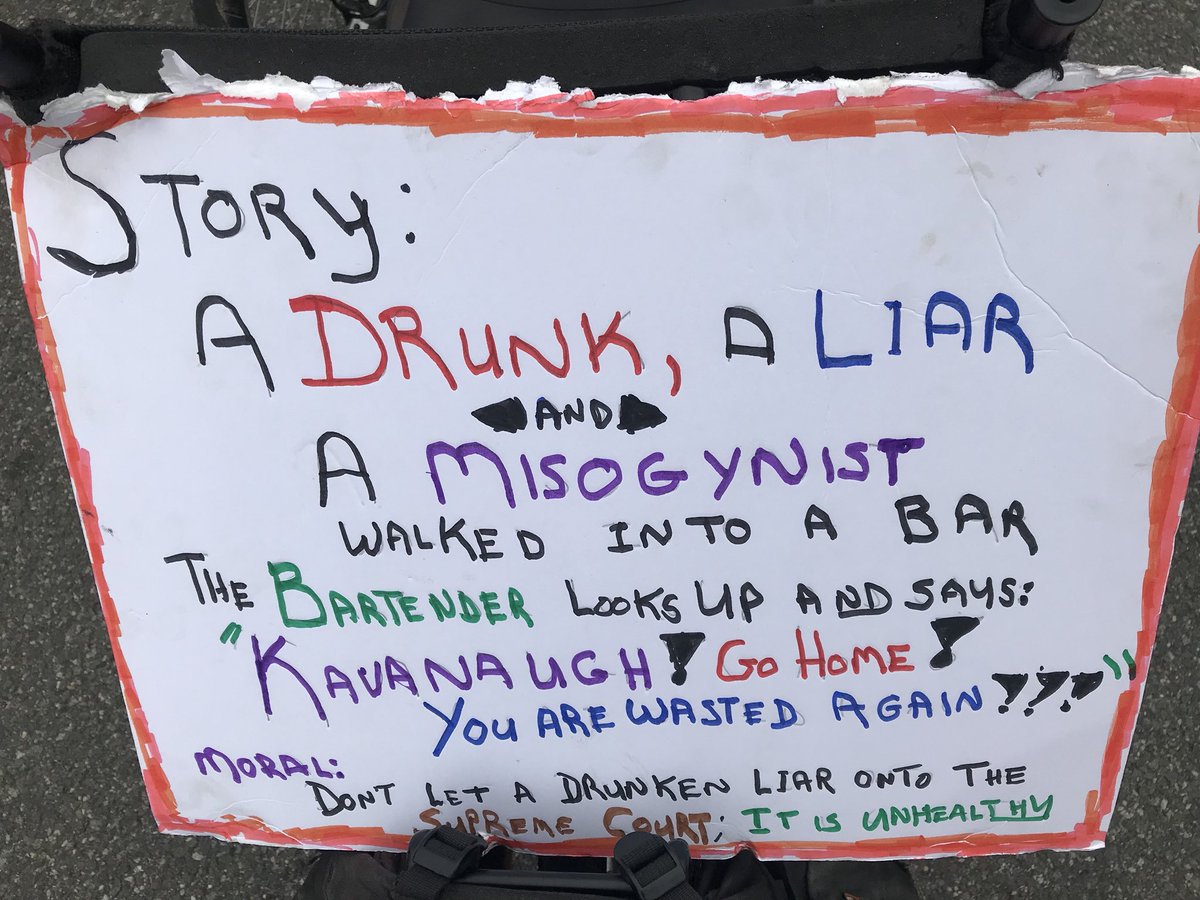 STORY:
A DRUNK, A LIAR
AND
A MISOGYNIST
WALKED INTO A BAR
THE BARTENDER LOOKS UP AND SAYS:
"KAVANAUGH! GO HOME!
YOU ARE WASTED AGAIN!!!"
MORAL:
DONT LET A DRUNKEN LIAR ONTO THE
SUPREME COURT; IT IS UNHEALTHY